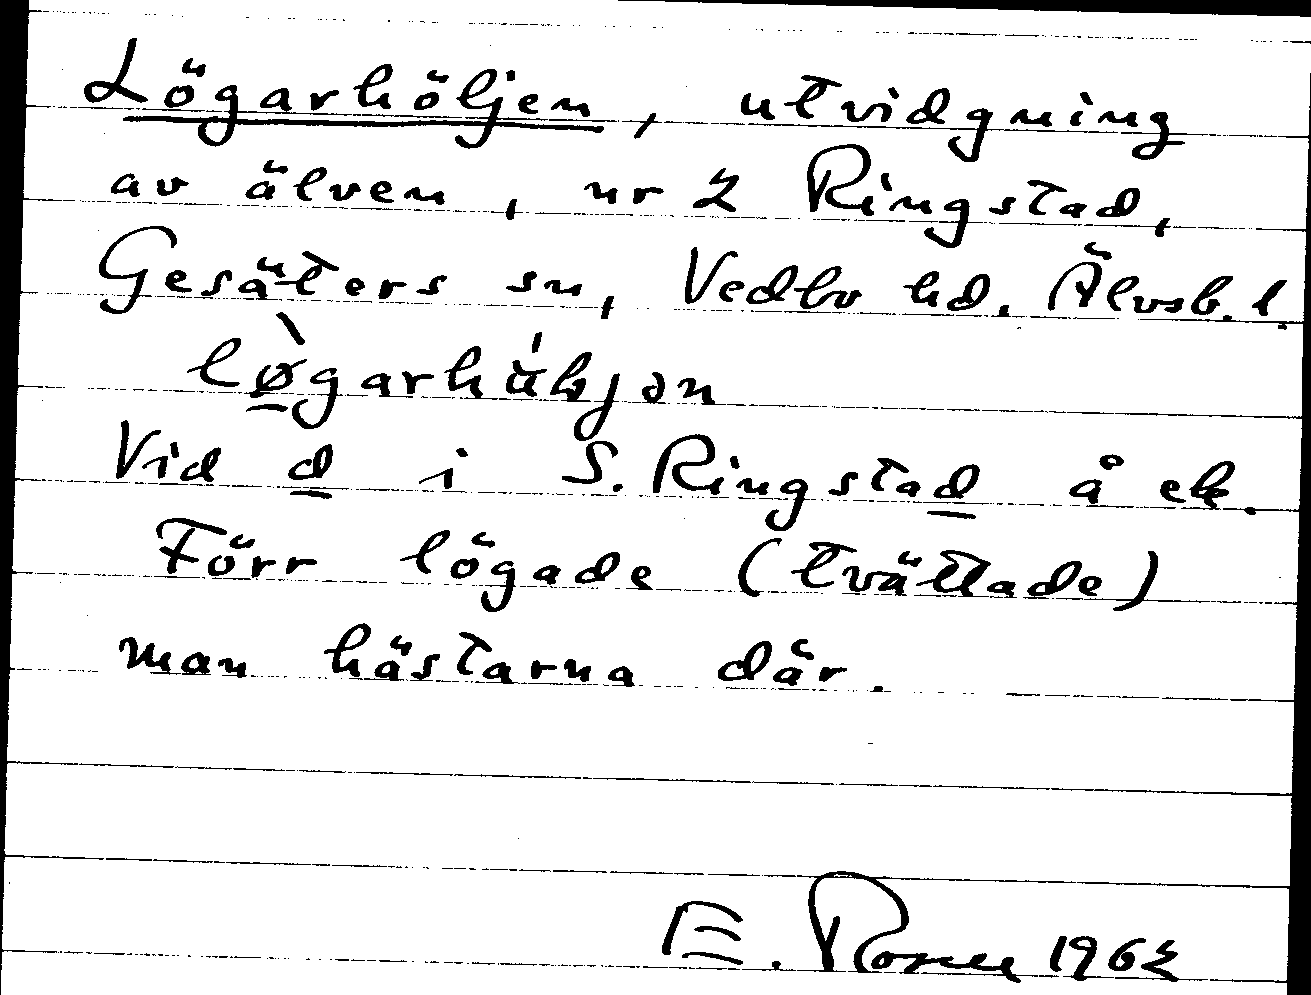 Lögarhöljen, utvidgning
av älven, nr 2 Ringstad,
Gesäters sn, Vedbo hd. Älvsb. l.
Vid d i S. Ringstad å ek.
Förr lögade (tvättade)
man hästarna där.
E. 1962